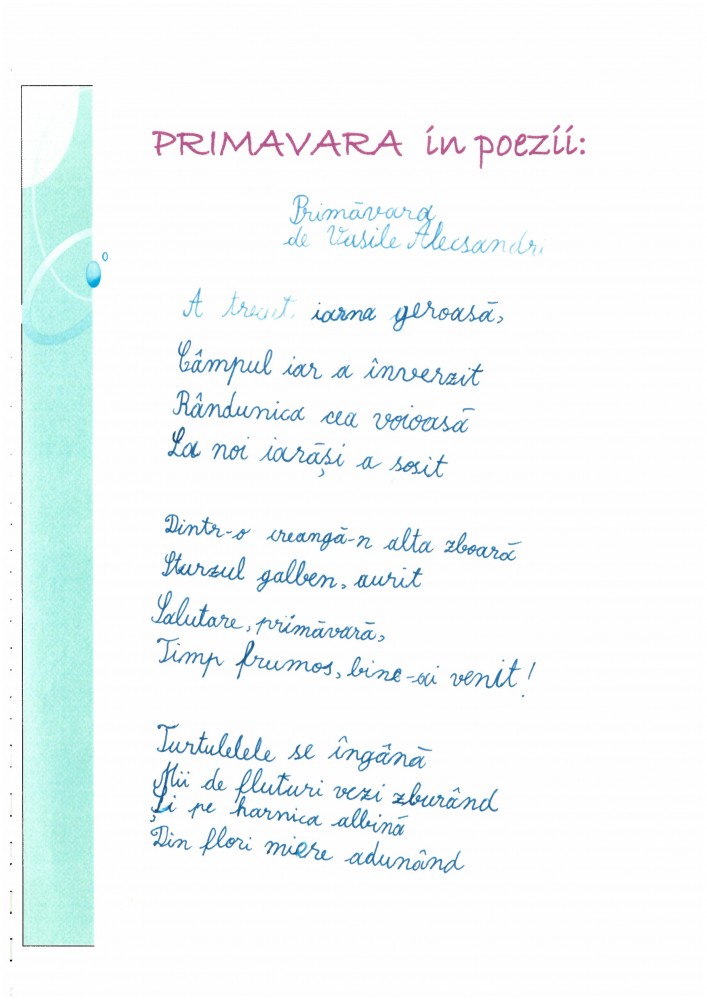 PRIMAVARA in poezii:
Primăvara
de Vasile Alecsandri
A trecut iarna geroasă,
Câmpul iar a înverzit
Rândunica cea voioasă
La noi iarăși a sosit
Dintr-o creangă-n alta zboară
Sturzul galben, aurit
Salutare, primăvară,
Timp frumos, bine-ai venit!
Turtulelele se îngână
Mii de fluturi vezi zburând
Și pe harnica albină
Din flori miere adunând